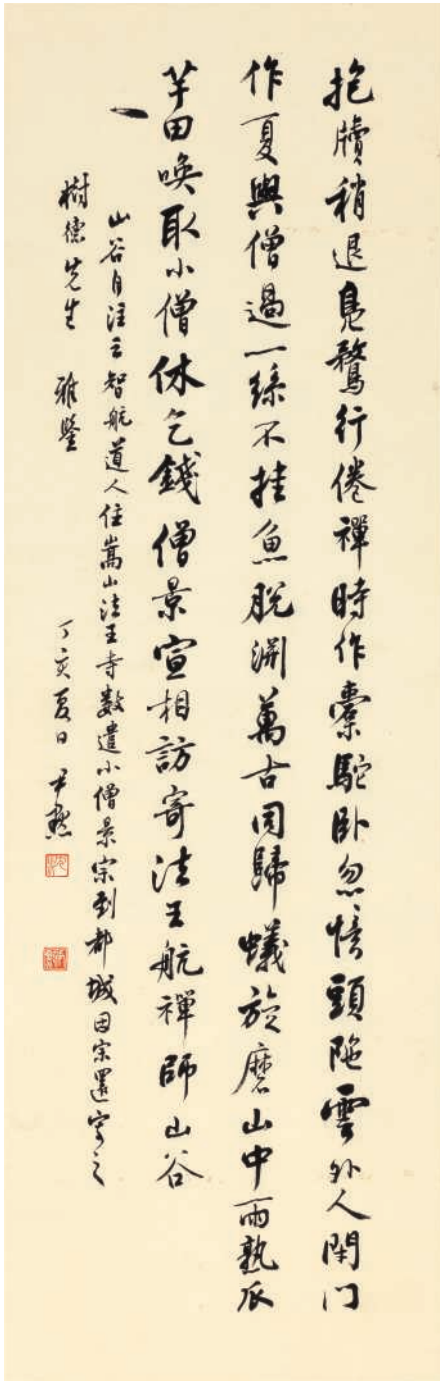 抱牘稍退鳧鶩行倦禪時作橐駝臥忽憶頭陁雲外人閉門
作夏與僧過一絲不挂魚脫淵萬古同歸蟻旋磨山中雨熟瓜
芋田喚取小僧休乞錢僧景宣相訪寄法王航禪師山谷
山谷自注云智航道人住嵩山法王寺數遣小僧景宗到都城因宗還寄之
樹德先生 雅鑒 丁亥夏日 尹默